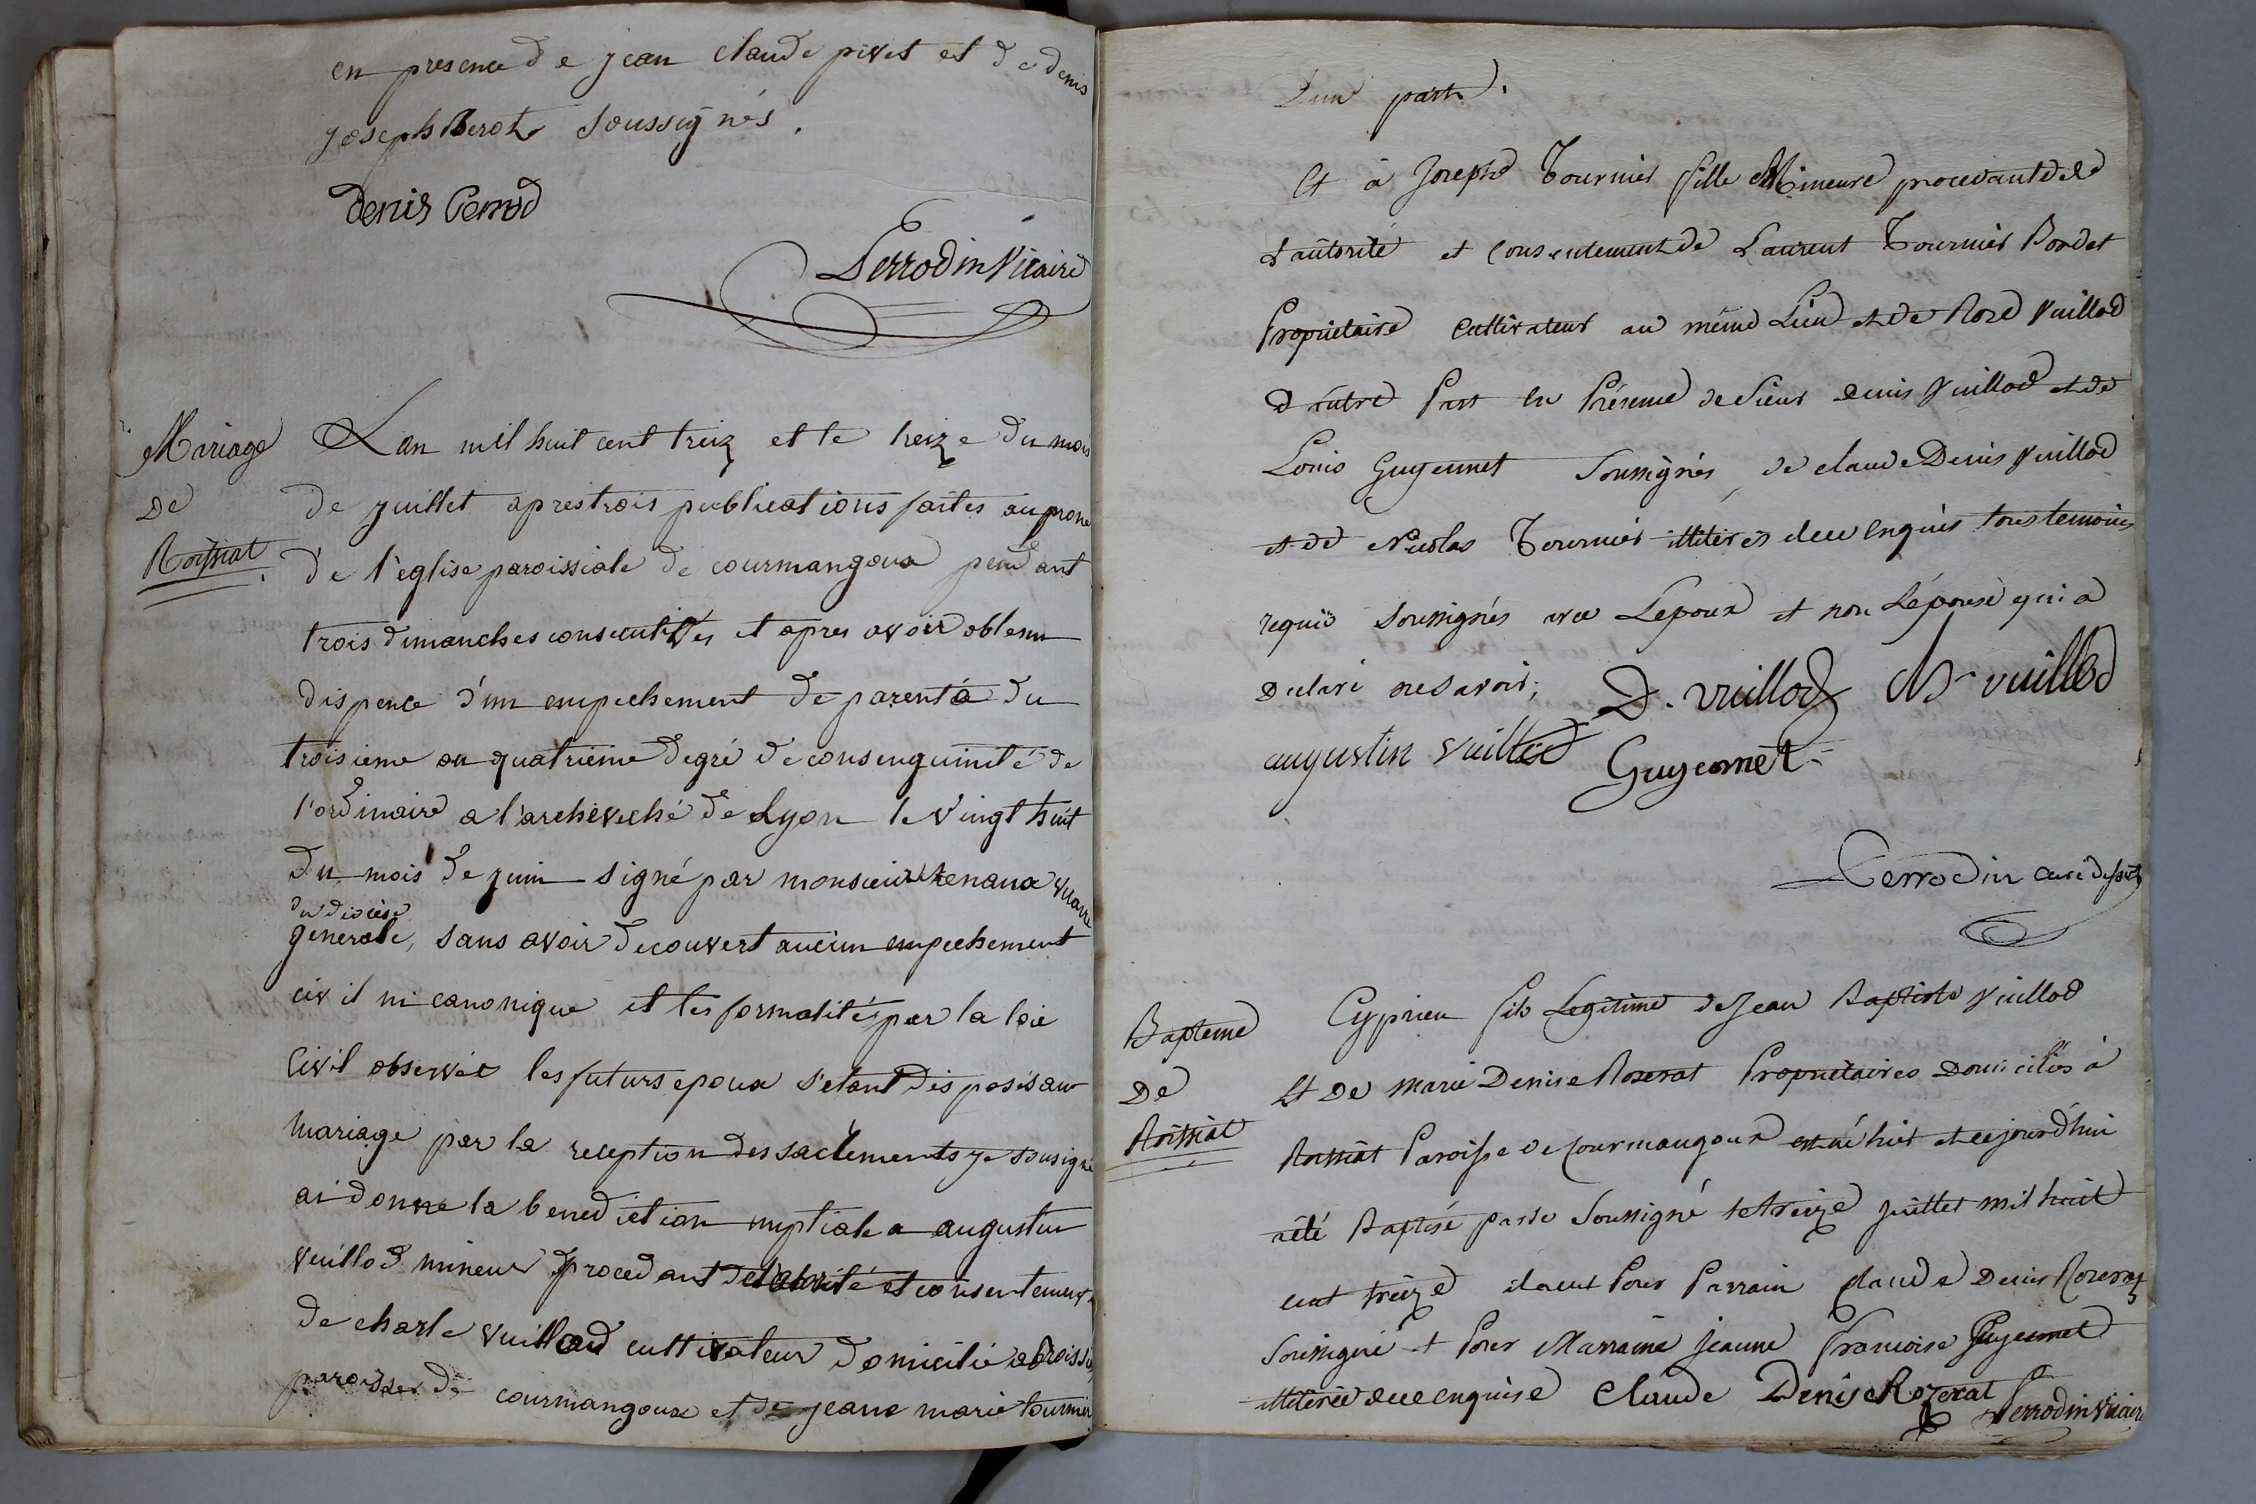 en presence de jean claude pivet et de denis
joseph Berot soussignés.
denis Perrod
Perrodin Vicaire
Mariage
De
Roissiat.
Lan mil huit cent treiz et le treize du mois
de juillet apres trois publications faites au prone
de l'eglise paroissiale de courmangoux pendant
trois dimanches consecutives et apres avoir obtenu
dispence d'un empechement de parenté du
troisieme au quatrieme degré de consenguinité de
l'ordinaire a l'archeveché de Lyon le vingt huit
du mois de juin signé par monsieur renaux vicaire
du diocèse
generale, sans avoir decouvert aucun empechement
civil ni canonique et les formalités par la loie
Civil observée les futurs epoux s'etant disposés au
mariage par la reception des sacrements je sousigné
ai donné la benediction nuptiale a augustin
vuillod mineur procedant de l'autorité et consentement
de charle vuillod cultivateur domicilié a Roissiat
paroisse de courmangoux et de jeane marie tournier
D'une part.
Et à Josephe Tournier fille Mineure procedante de
l'autorité et consentement de Laurent Tournier Bondet
Propriétaire Cultivateur au même Lieu et de Rose Vuillod
d'autre Part En Présence de Sieur denis Vuillod et de
Louis Guyennet Soussignés, de claude Denis Vuillod
et de Nicolas Tournier illitérés de ce enquis tous temoins
requis soussignés avec Lepoux et non L'épouse qui a
Déclaré ne savoir,
D. vuillod Ch vuillod
augustin vuillod Guyennet
Perrodin
Bapteme
De
Roissiat
Cyprien fils Légitime de Jean Baptiste Vuillod
Et De marie Denise Rozerat Propriétaires Domiciliés à
Roissiat Paroisse de Courmangoux est né hier et ce jourd'hui
a été Baptisé par le Soussigné le treize juillet mil huit
cent treize il a eut Pour Parrain claude Denis Rozerat
Soussigné et Pour Marraine Jeanne Francoise Guyennet
illiterée de ce enquise Claude Denis Rozerat Perrodin Vicaire